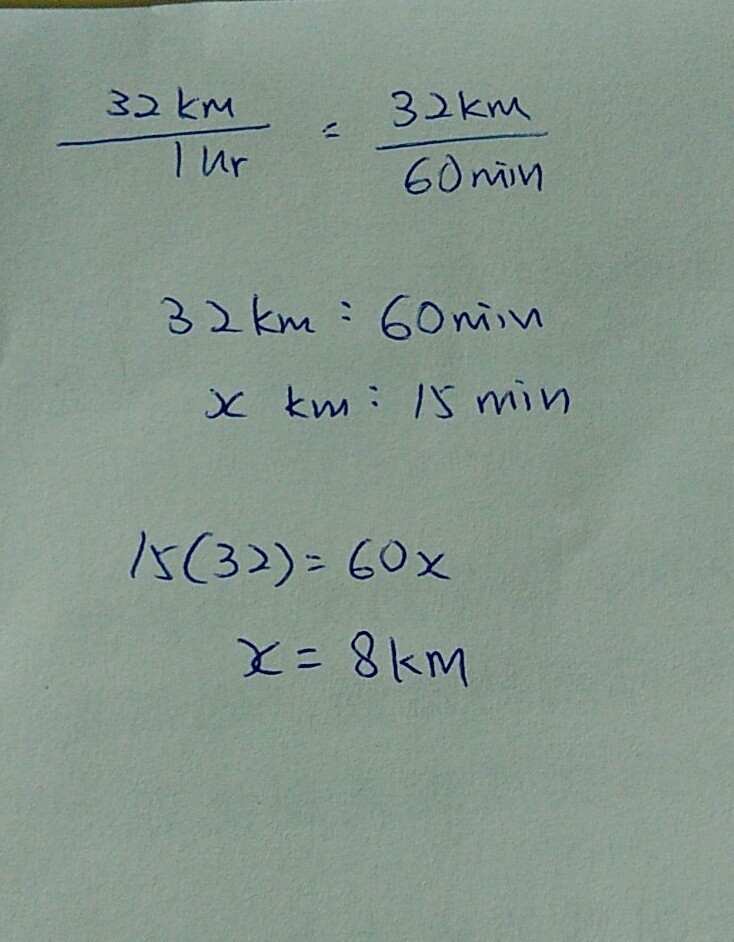 32 km = 32km
1 Hr 60 min
32 km : 60 min
x km : 15 min
15(32) = 60x
x = 8 km